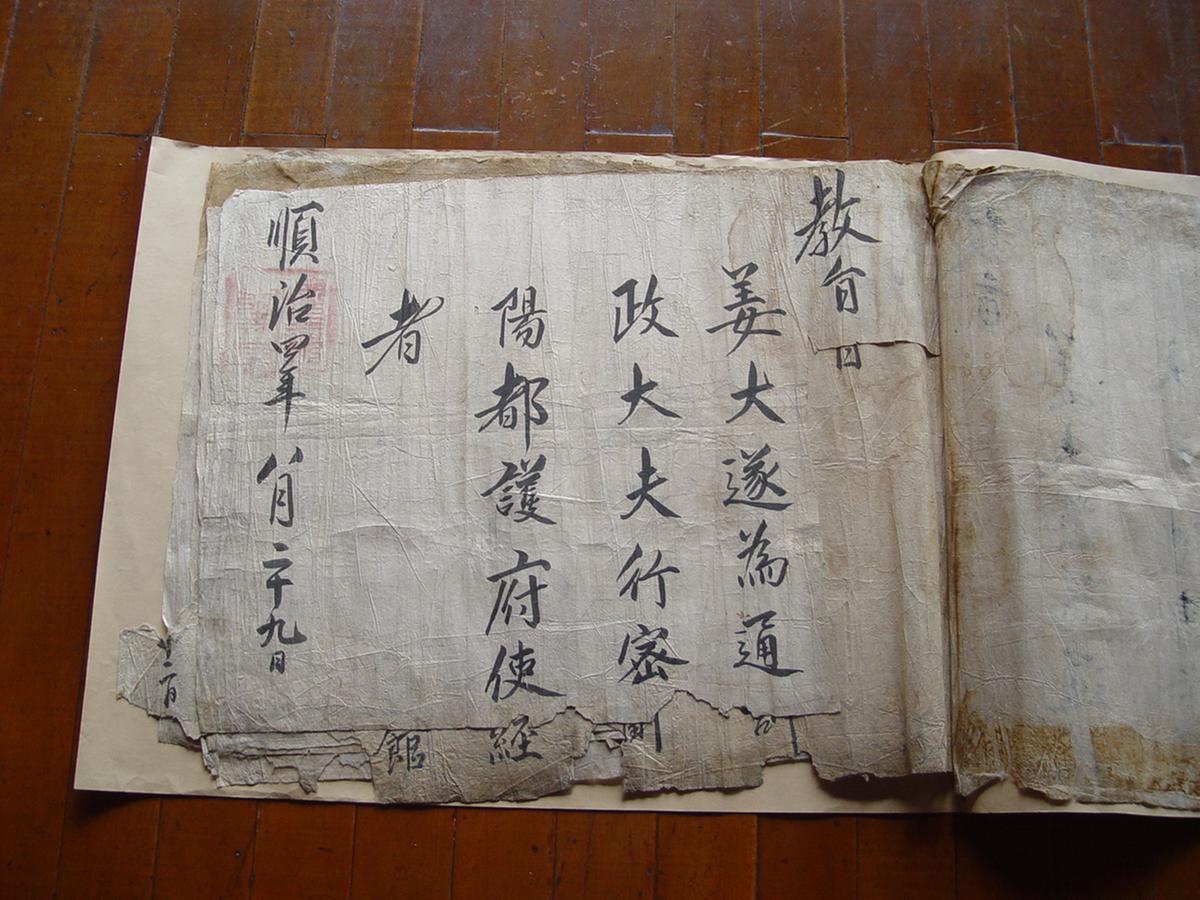 教旨
姜大遂為通
政大夫行密
陽都護府使
者
順治四年八月二十九日
經
館